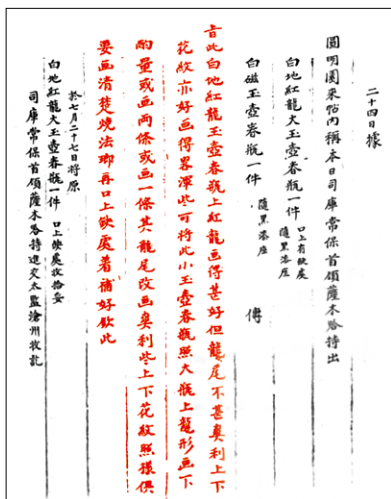 二十四日據
圓明園來帖內稱本日司庫常保首領薩木哈持出
白地紅龍大玉壺春瓶一件口上有缺處隨黑漆座
白磁玉壺春瓶一件隨黑漆座 傳
旨此白地紅龍玉壺春瓶上紅龍畫得甚好但龍尾不甚奧利上下
花紋亦好畫得畧渾些可將此小玉壺春瓶照大瓶上龍形畫下
酌量或画兩條或画一條其龍尾改画奧利些上下花紋照樣俱
要画清楚燒法瑯再口上缺處着補好欽此
於七月二十七日將原
白地紅龍大玉壺春瓶一件口上缺處收拾妥
司庫常保首領薩木哈持進交太監滄州收訖